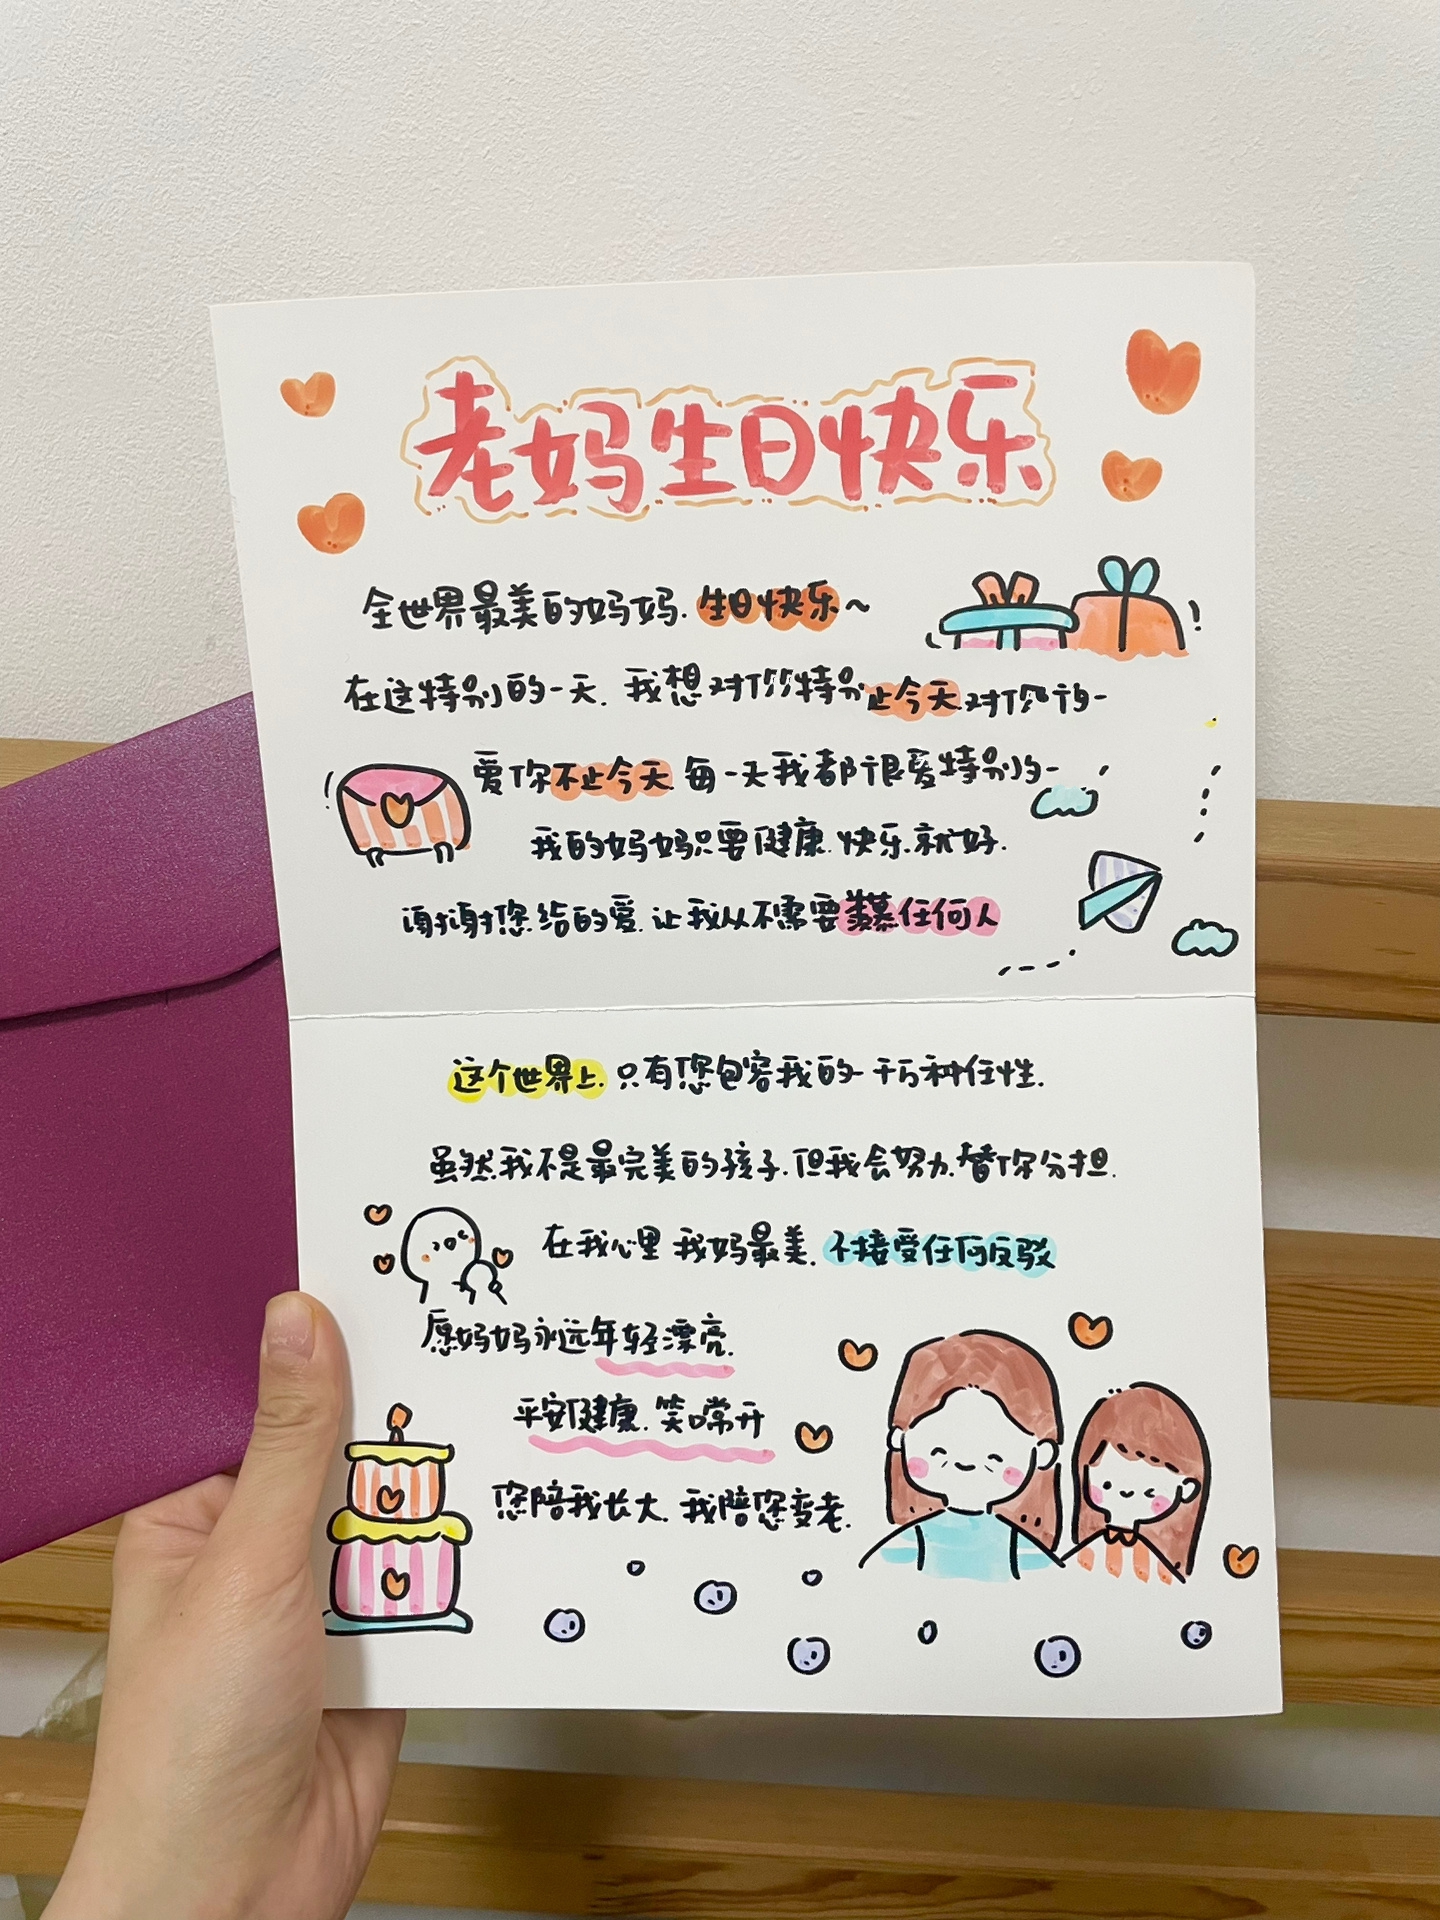 老妈生日快乐
全世界最美的妈妈.生日快乐~
在这特别的一天.我想对你特别止今天.对你的
爱你不止今天.每一天我都很爱特别的
我的妈妈只要健康.快乐.就好.
谢谢您给的爱.让我从不需要羡慕任何人
这个世界上.只有您包容我的千万种任性.
虽然我不是最完美的孩子.但我会努力.替你分担.
在我心里 我妈最美.不接受任何反驳
愿妈妈永远年轻漂亮.
平安健康.笑口常开
您陪我长大.我陪您变老.